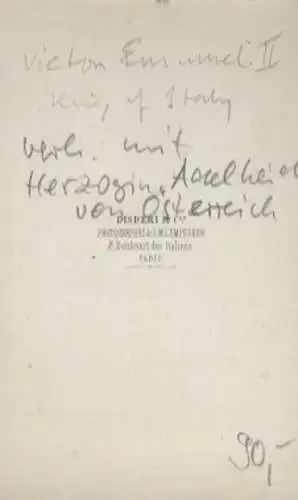 Victor Emanuel. II
King of Italy
verh. mit
Herzogin Adelheid
von Österreich
DISDERI & Cie
PHOTOGRAPHES de S.M. L'EMPEREUR
8. Boulevart des Italiens
PARIS
90,-